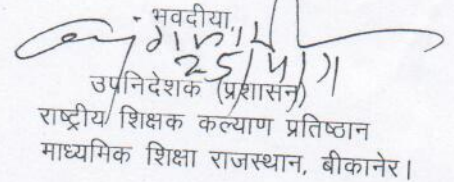 भवदीया,
25/4/11
उपनिदेशक (प्रशासन)
राष्ट्रीय शिक्षक कल्याण प्रतिष्ठान
माध्यमिक शिक्षा राजस्थान, बीकानेर।